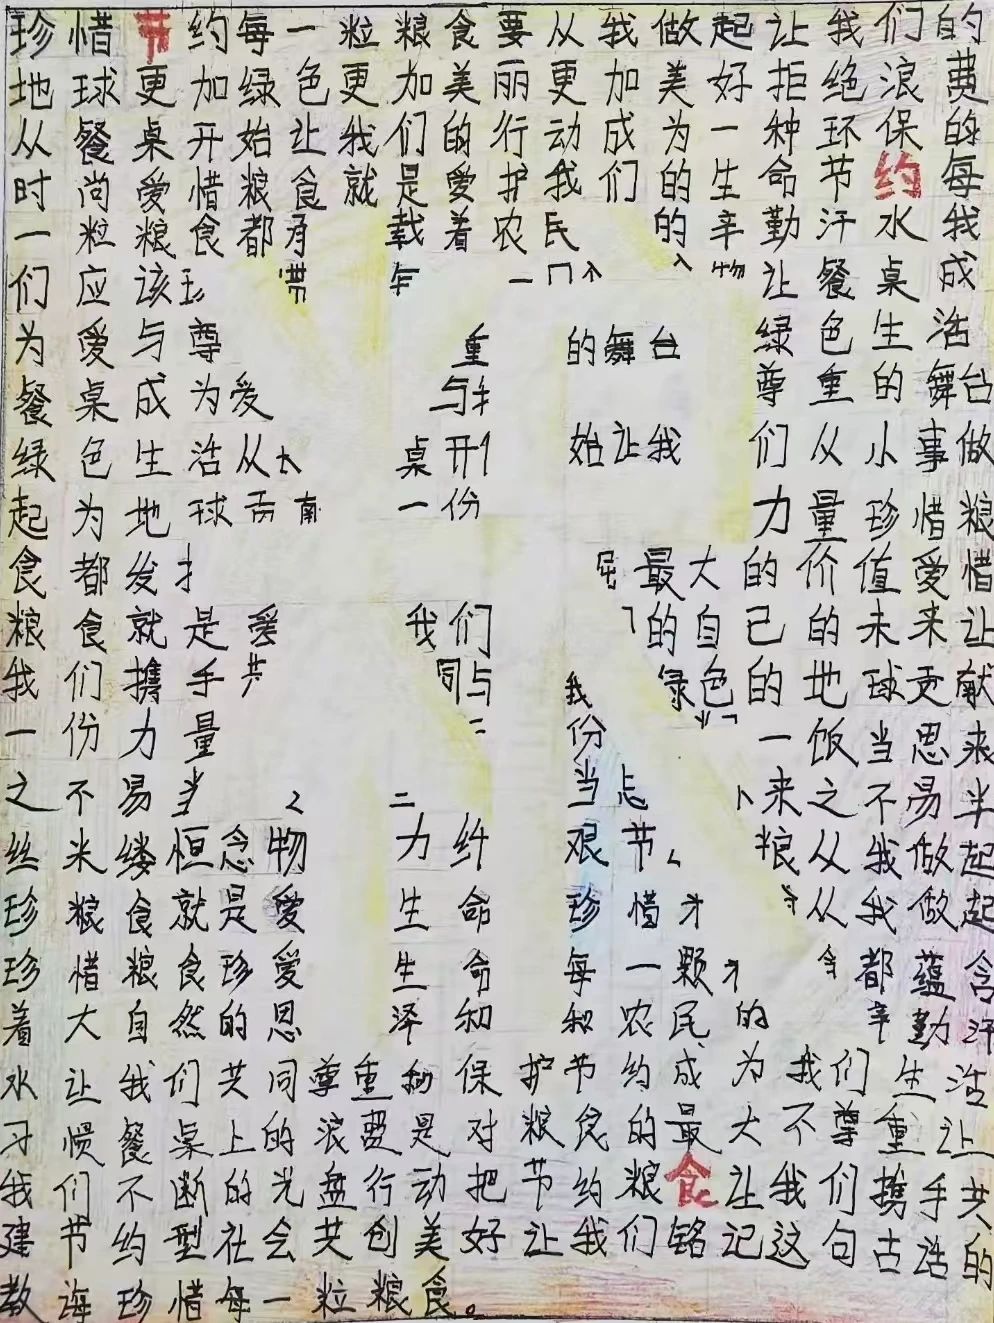 珍惜节约每一粒粮食要从我做起让我们的
地球更加绿色更加美丽更加美好拒绝浪费
从餐桌开始让我们的行动成为一种环保的
时尚爱惜粮食就是爱护我们的生命节约每
一粒粮食都承载着农民的辛勤汗水我
们应该一让餐桌成
为爱与尊重的舞台绿色生活
餐桌成为爱与尊重的舞台
绿色生活从桌开始让我们从小事做
起为地球一份力量珍惜粮
食都发最大的价值爱惜
粮食就是爱我们的自己的未来让
我们携手共同与我绿色的地球更献
一份力量份一饭当思来
之不易当当来之不易半
丝米缕恒念物力纤艰节粮从我做起
珍粮食就是爱生命珍惜从我做起
珍惜粮食珍爱生命每一颗都蕴含
着大自然的恩泽和和农民的辛勤汗
水让我们共同尊重和保护节约成为我们生活
习惯餐桌上的浪费是对粮食的最大不尊重让
我们不断的光盘行动把节约粮食让我们携手共
建节约型社会共创美好让我们铭记这句古话的
教诲珍惜每一粒粮食。